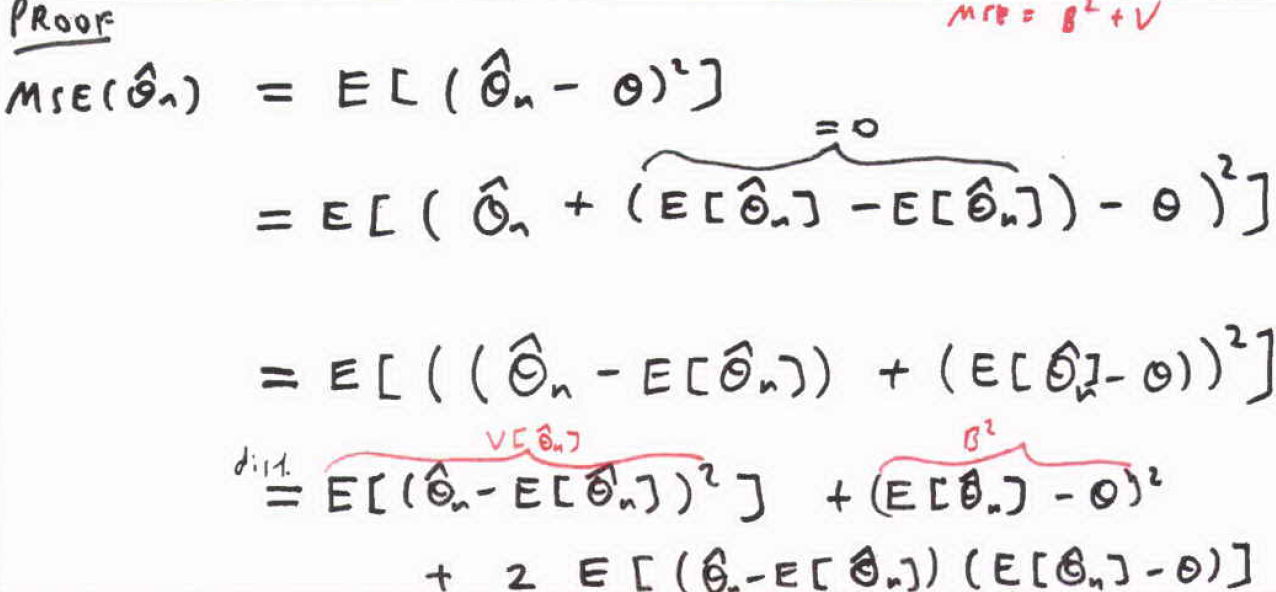 PROOF
MSE = B² + V
MSE(θ̂ₙ) = E[(θ̂ₙ - θ)²]
= 0
= E[(θ̂ₙ + (E[θ̂ₙ] - E[θ̂ₙ]) - θ)²]
= E[((θ̂ₙ - E[θ̂ₙ]) + (E[θ̂ₙ] - θ))²]
V[θ̂ₙ] B²
dist. = E[(θ̂ₙ - E[θ̂ₙ])²] + (E[θ̂ₙ] - θ)²
+ 2 E[(θ̂ₙ - E[θ̂ₙ])(E[θ̂ₙ] - θ)]